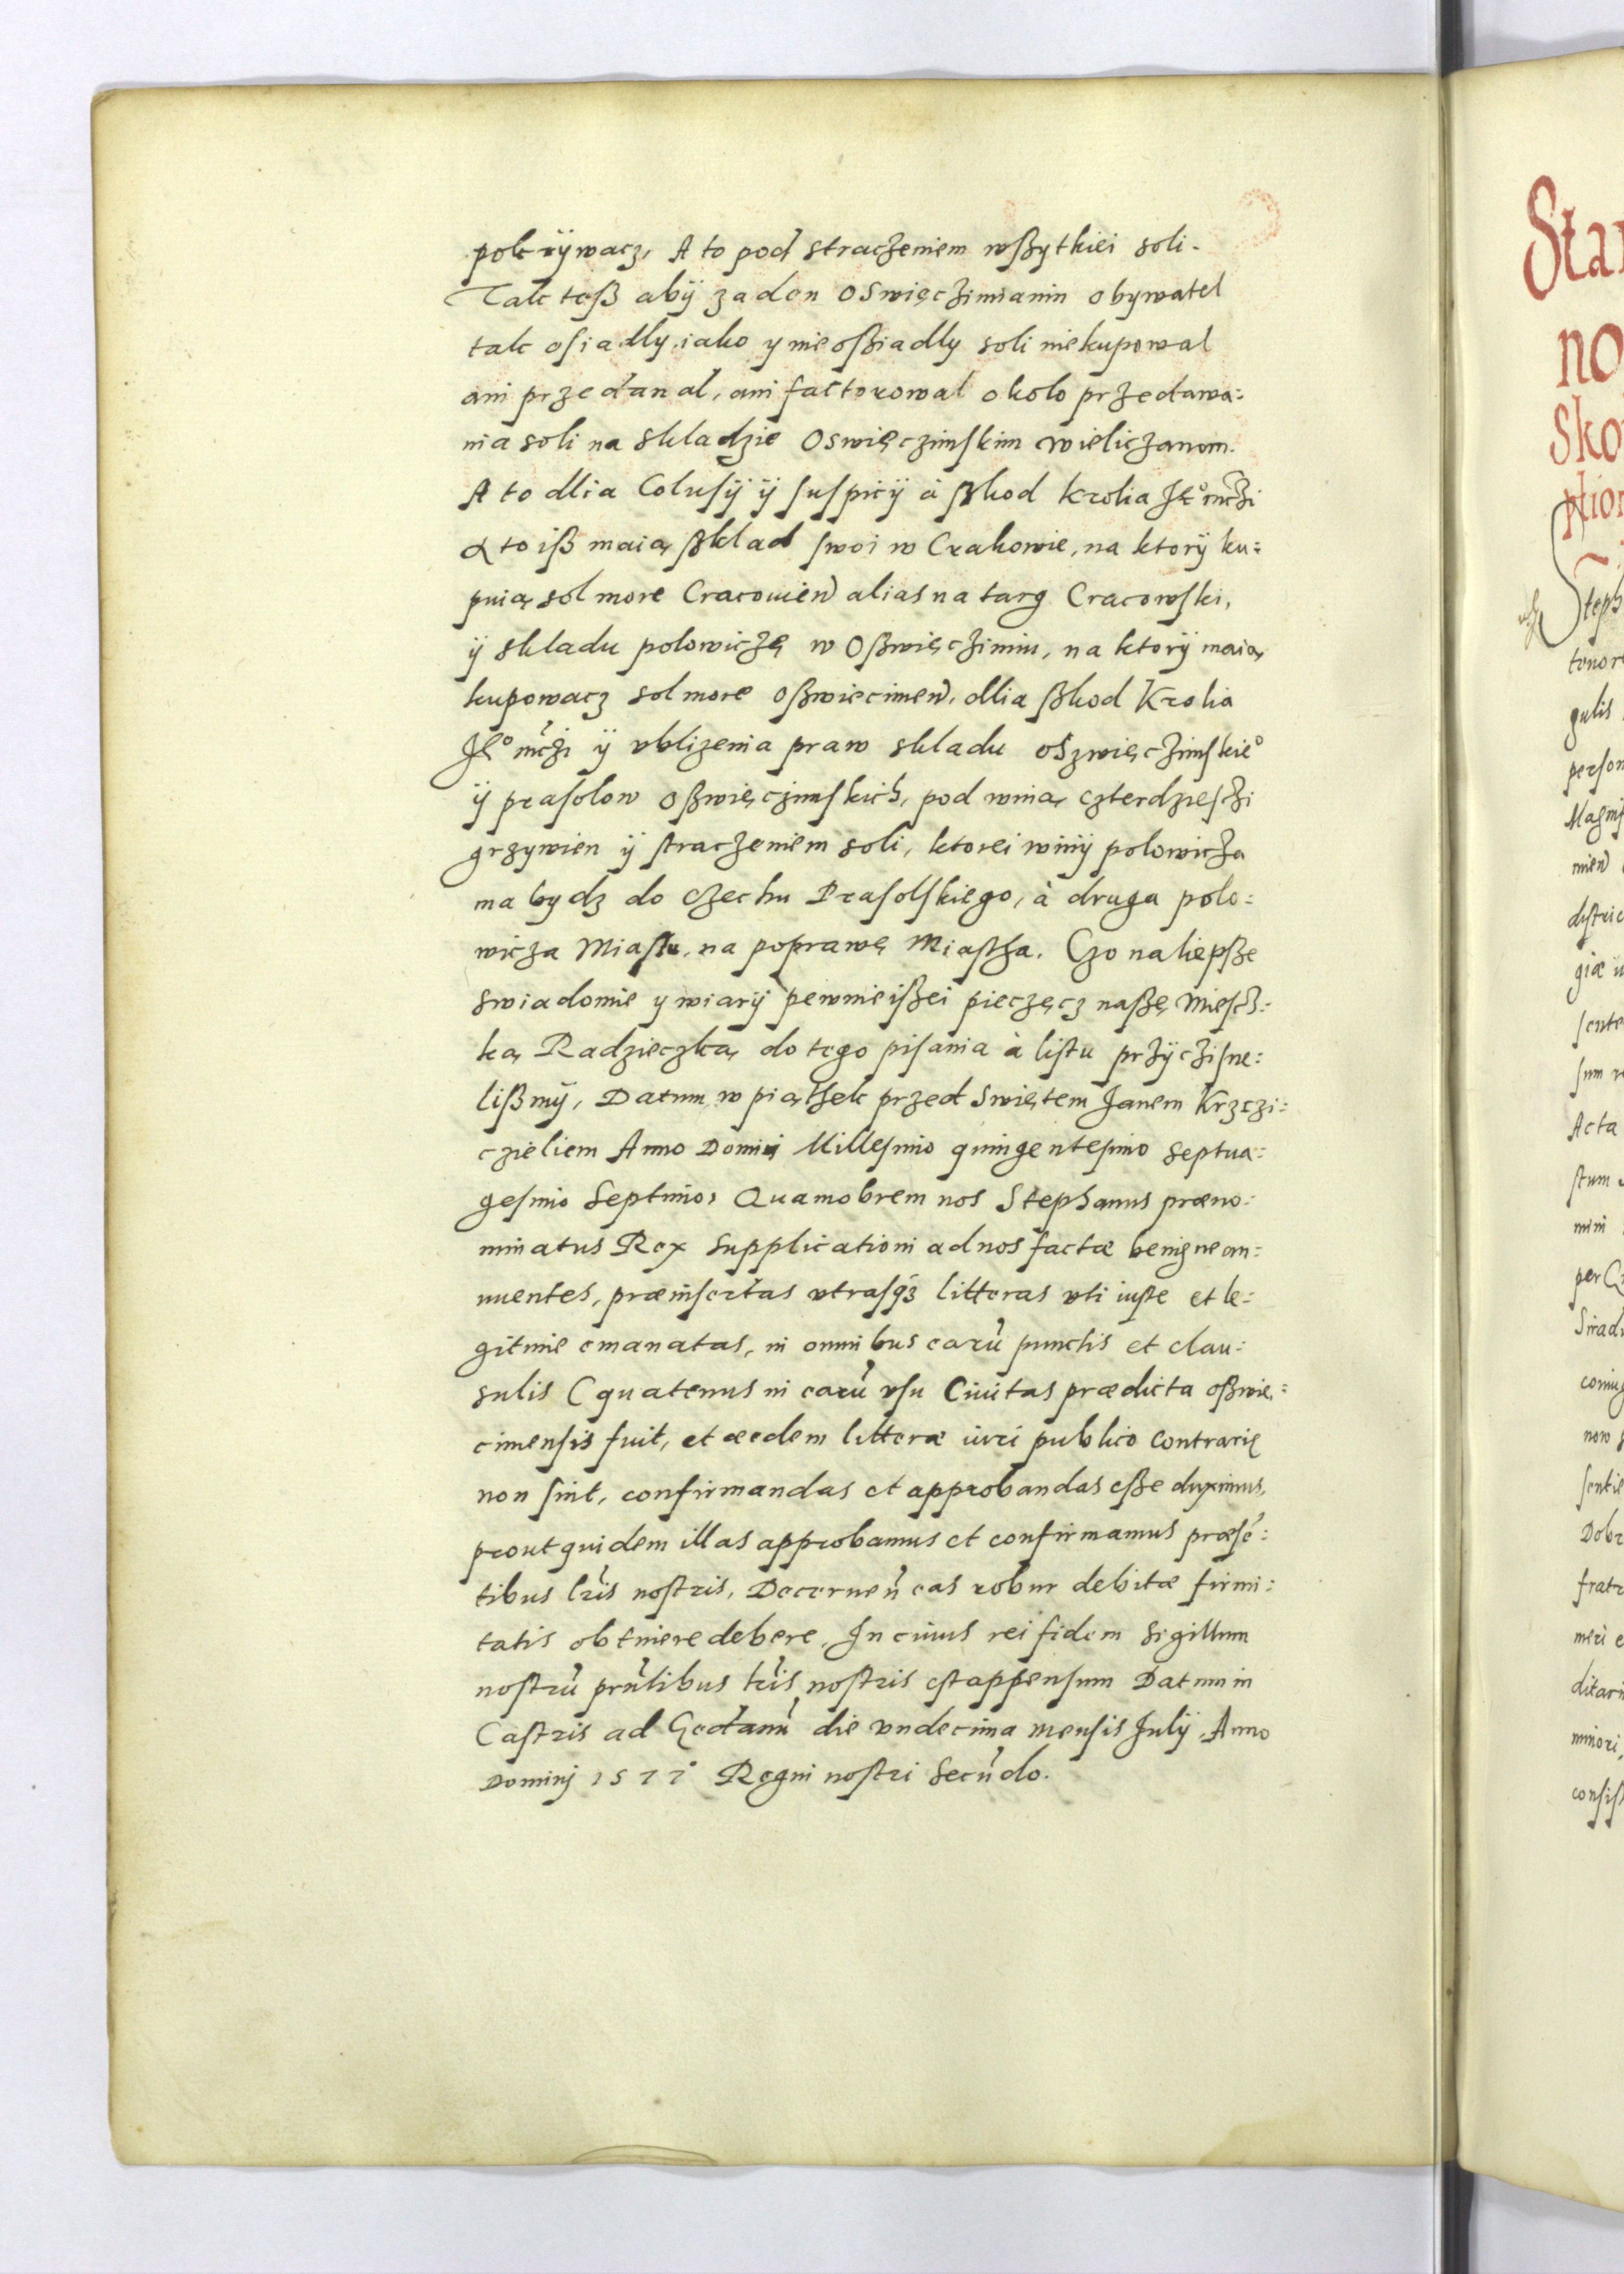 pokrÿwacz, A to pod straczeniem wßytkiei soli.
Tak teß abÿ zaden Oswięczimianin obywatel
tak osiadly iako y nieoßiadly soli niekupowal
ani przedawal, ani factorowal okolo przedawa:
nia soli na skladzie Oswięczimskim Wieliczanom.
A to dlia Colusÿ ÿ suspicÿ à ßkod Krolia Je͠o mczi
A to iß maią ßklad swoi w Crakowie, na ktorÿ ku:
puią sol more Cracouien̄ alias na targ Cracowski,
ÿ skladu polowiczę w Oßwięczimiu, na ktorÿ maią
kupowacz sol more oßwiecimen̄, dlia ßkod Krolia
Je͠o mczi ÿ vblizenia praw skladu oszwięczimskie͠o
ÿ prasolow oßwięczimskich, pod winą czterdziesczi
grzywien ÿ straczeniem soli, ktorei winÿ polowicza
ma bydz do czechu Prasolskiego, à druga polo:
wicza Miastu, na poprawę Miastha. Czo naliepsze
swiadomie y wiarÿ pewnieißei pieczęcz naßę Miescz:
ką Radzieczką do tego pisania à listu przÿczisne:
lißmÿ, Datum w piąthek przed swiętem Janem Krzczi:
czieliem Anno Domini Millesimo quingentesimo septua:
gesimo septimo, Quamobrem nos Stephanus præno:
minatus Rex supplicationi ad nos factæ benigne an:
nuentes, præinsertas vtrasq₃ litteras vti iuste et le:
gitime emanatas, in omnibus earū punctis et clau:
sulis (quatenus in earū vsu Ciuitas prædicta oßwie:
cimensis fuit, et eædem litteræ iuri publico contrarię
non sint, confirmandas et approbandas eße duximus,
prout quidem illas approbamus et confirmamus præsē:
tibus lr̄is nostris, Decernen̄ eas robur debitæ firmi:
tatis obtinere debere. In cuius rei fidem sigillum
nostrū prn̄tibus lr̄is nostris est appensum Datum in
Castris ad Gedanū die vndecima mensis Julÿ Anno
Dominj 1577° Regni nostri Secūdo.
Star
no
sko
ption
Steph
tenor
gulis
person
mien̄
distric
giæ
sente
sum
Acta
stum
mini
per
Sirad
coniug
now
Dobr
fratr
meri
ditari
minori,
consist